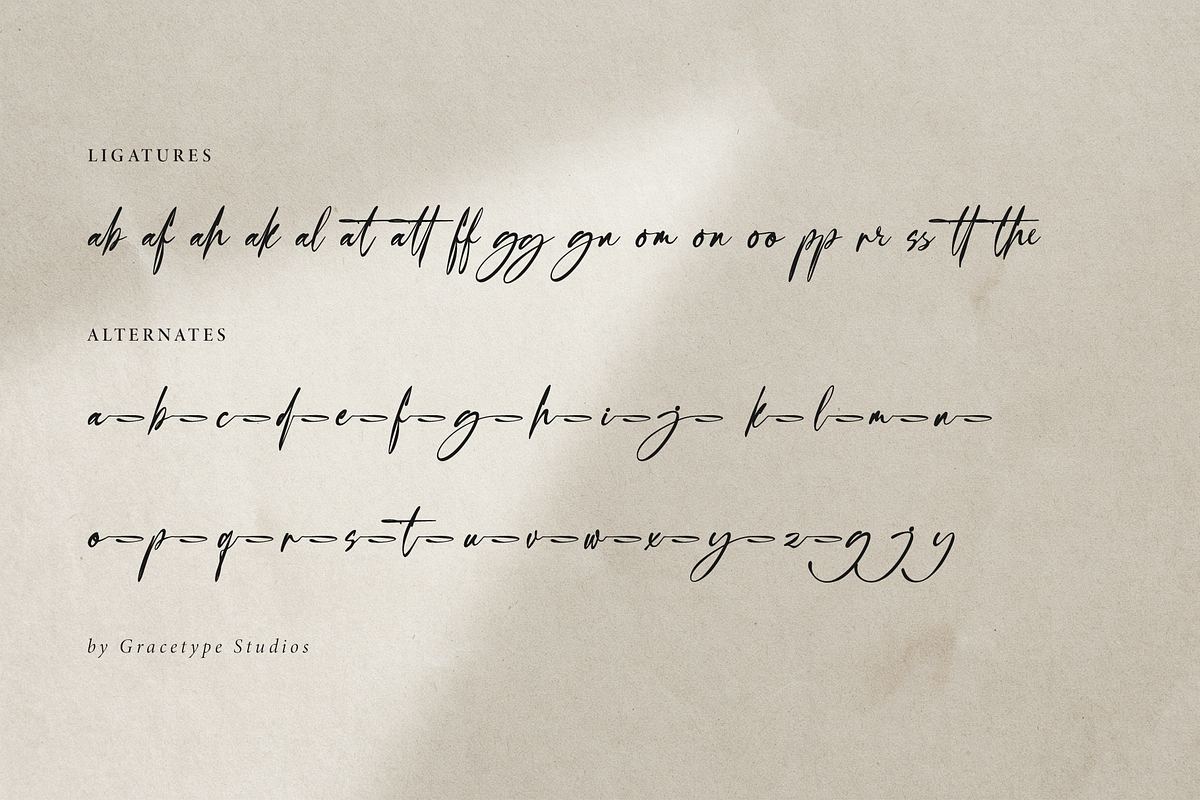 LIGATURES
ab af ah ak al at att ff gg gn om on oo pp rr ss tt the
ALTERNATES
a b c d e f g h i j k l m n
o p q r s t u v w x y z g j y
by Gracetype Studios